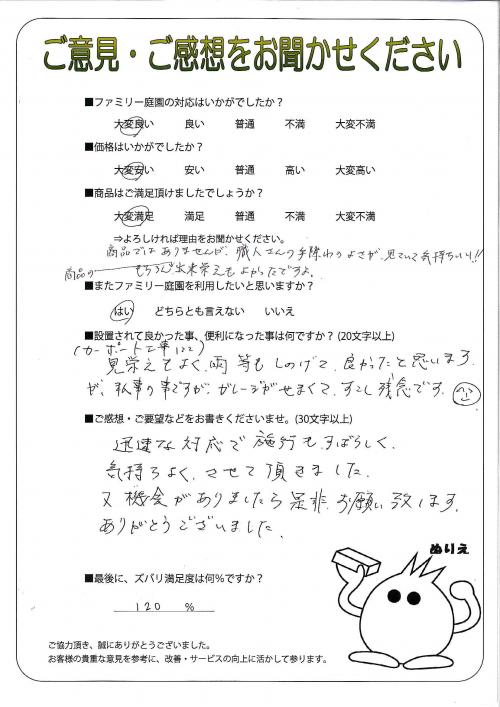 ご意見・ご感想をお聞かせください
■ファミリー庭園の対応はいかがでしたか？
大変良い 良い 普通 不満 大変不満
■価格はいかがでしたか？
大変安い 安い 普通 高い 大変高い
■商品はご満足頂けましたでしょうか？
大変満足 満足 普通 不満 大変不満
⇒よろしければ理由をお聞かせください。
商品ではありませんが、職人さんの手際わのよさが、見ていて気持ちいい!!
商品の もちろん出来栄えもよかったですよ。
■またファミリー庭園を利用したいと思いますか？
はい どちらとも言えない いいえ
■設置されて良かった事、便利になった事は何ですか？(20文字以上)
(カーポート工事にて)
見栄えもよく、雨等もしのげて、良かったと思います
が、私事の事ですが、ガレージがせまくて、すこし残念です。
■ご感想・ご要望などをお書きくださいませ。(30文字以上)
迅速な対応で施行もすばらしく、
気持ちよく、させて頂きました。
又機会がありましたら是非、お願い致します。
ありがとうございました。
ぬりえ
■最後に、ズバリ満足度は何％ですか？
120 ％
ご協力頂き、誠にありがとうございました。
お客様の貴重な意見を参考に、改善・サービスの向上に活かして参ります。